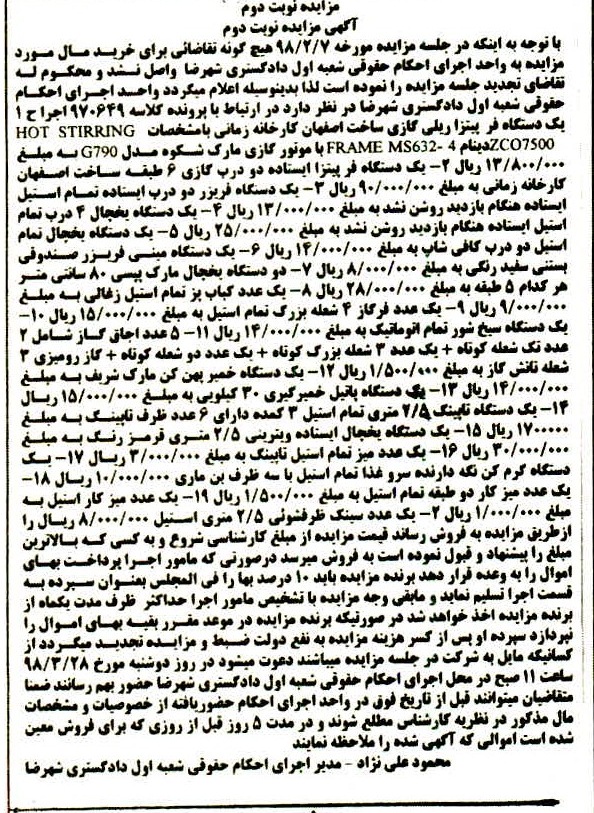 مزایده نوبت دوم
آگهی مزایده نوبت دوم
با توجه به اینکه در جلسه مزایده مورخه ۹۸/۲/۷ هیچ گونه تقاضائی برای خرید مال مورد
مزایده به واحد اجرای احکام حقوقی شعبه اول دادگستری شهرضا واصل نشد و محکوم له
تقاضای تجدید جلسه مزایده را نموده است لذا بدینوسیله اعلام میگردد واحد اجرای احکام
حقوقی شعبه اول دادگستری شهرضا در نظر دارد در ارتباط با پرونده کلاسه ۹۷۰۶۴۹ اجرا ح ۱
یک دستگاه فر پیتزا ریلی گازی ساخت اصفهان کارخانه زمانی بامشخصات HOT STIRRING
ZCO7500دینام FRAME MS632- 4 با موتور گازی مارک شکوه مدل G790 به مبلغ
۱۳/۸۰۰/۰۰۰ ریال ۲- یک دستگاه فر پیتزا ایستاده دو درب گازی ۶ طبقه ساخت اصفهان
کارخانه زمانی به مبلغ ۹۰/۰۰۰/۰۰۰ ریال ۳- یک دستگاه فریزر دو درب ایستاده تمام استیل
ایستاده هنگام بازدید روشن نشد به مبلغ ۱۳/۰۰۰/۰۰۰ ریال ۴- یک دستگاه یخچال ۴ درب تمام
استیل ایستاده هنگام بازدید روشن نشد به مبلغ ۲۵/۰۰۰/۰۰۰ ریال ۵- یک دستگاه یخچال تمام
استیل دو درب کافی شاپ به مبلغ ۱۴/۰۰۰/۰۰۰ ریال ۶- یک دستگاه مینی فریزر صندوقی
بستنی سفید رنگی به مبلغ ۸/۰۰۰/۰۰۰ ریال ۷- دو دستگاه یخچال مارک پیسی ۸۰ سانتی متر
هر کدام ۵ طبقه به مبلغ ۲۸/۰۰۰/۰۰۰ ریال ۸- یک عدد کباب پز تمام استیل زغالی به مبلغ
۹/۰۰۰/۰۰۰ ریال ۹- یک عدد فرگاز ۴ شعله بزرگ تمام استیل به مبلغ ۱۵/۰۰۰/۰۰۰ ریال ۱۰-
یک دستگاه سیخ شور تمام اتوماتیک به مبلغ ۱۴/۰۰۰/۰۰۰ ریال ۱۱- ۵ عدد اجاق گاز شامل ۲
عدد تک شعله کوتاه + یک عدد ۳ شعله بزرگ کوتاه + یک عدد دو شعله کوتاه + گاز رومیزی ۳
شعله تانش گاز به مبلغ ۱/۵۰۰/۰۰۰ ریال ۱۲- یک دستگاه خمیر پهن کن مارک شریف به مبلغ
۱۴/۰۰۰/۰۰۰ ریال ۱۳- یک دستگاه پاتیل خمیرگیری ۳۰ کیلویی به مبلغ ۱۵/۰۰۰/۰۰۰ ریال
۱۴- یک دستگاه تاپینگ ۲/۵ متری تمام استیل ۳ کمده دارای ۶ عدد ظرف تاپینگ به مبلغ
۱۷۰۰۰۰۰ ریال ۱۵- یک دستگاه یخچال ایستاده ویترینی ۲/۵ متری قرمز رنگ به مبلغ
۳۰/۰۰۰/۰۰۰ ریال ۱۶- یک عدد میز تمام استیل تاپینگ به مبلغ ۳/۰۰۰/۰۰۰ ریال ۱۷- یک
دستگاه گرم کن نگه دارنده سرو غذا تمام استیل با سه ظرف بن ماری ۱۰/۰۰۰/۰۰۰ ریال ۱۸-
یک عدد میز کار دو طبقه تمام استیل به مبلغ ۱/۵۰۰/۰۰۰ ریال ۱۹- یک عدد میز کار استیل به
مبلغ ۱/۰۰۰/۰۰۰ ریال ۲- یک عدد سینک ظرفشوئی ۲/۵ متری استیل ۸/۰۰۰/۰۰۰ ریال را
ازطریق مزایده به فروش رساند قیمت مزایده از مبلغ کارشناسی شروع و به کسی که بالاترین
مبلغ را پیشنهاد و قبول نموده است به فروش میرسد درصورتی که مامور اجرا پرداخت بهای
اموال را به وعده قرار دهد برنده مزایده باید ۱۰ درصد بها را فی المجلس بعنوان سپرده به
قسمت اجرا تسلیم نماید و مابقی وجه مزایده با تشخیص مامور اجرا حداکثر ظرف مدت یکماه از
برنده مزایده اخذ خواهد شد در صورتیکه برنده مزایده در موعد مقرر بقیه بهای اموال را
نپردازد سپرده او پس از کسر هزینه مزایده به نفع دولت ضبط و مزایده تجدید میگردد از
کسانیکه مایل به شرکت در جلسه مزایده میباشند دعوت میشود در روز دوشنبه مورخ ۹۸/۳/۲۸
ساعت ۱۱ صبح در محل اجرای احکام حقوقی شعبه اول دادگستری شهرضا حضور بهم رسانند ضمنا
متقاضیان میتوانند قبل از تاریخ فوق در واحد اجرای احکام حضوریافته از خصوصیات و مشخصات
مال مذکور در نظریه کارشناس مطلع شوند و در مدت ۵ روز قبل از روزی که برای فروش معین
شده است اموالی که آگهی شده را ملاحظه نمایند
محمود علی نژاد - مدیر اجرای احکام حقوقی شعبه اول دادگستری شهرضا